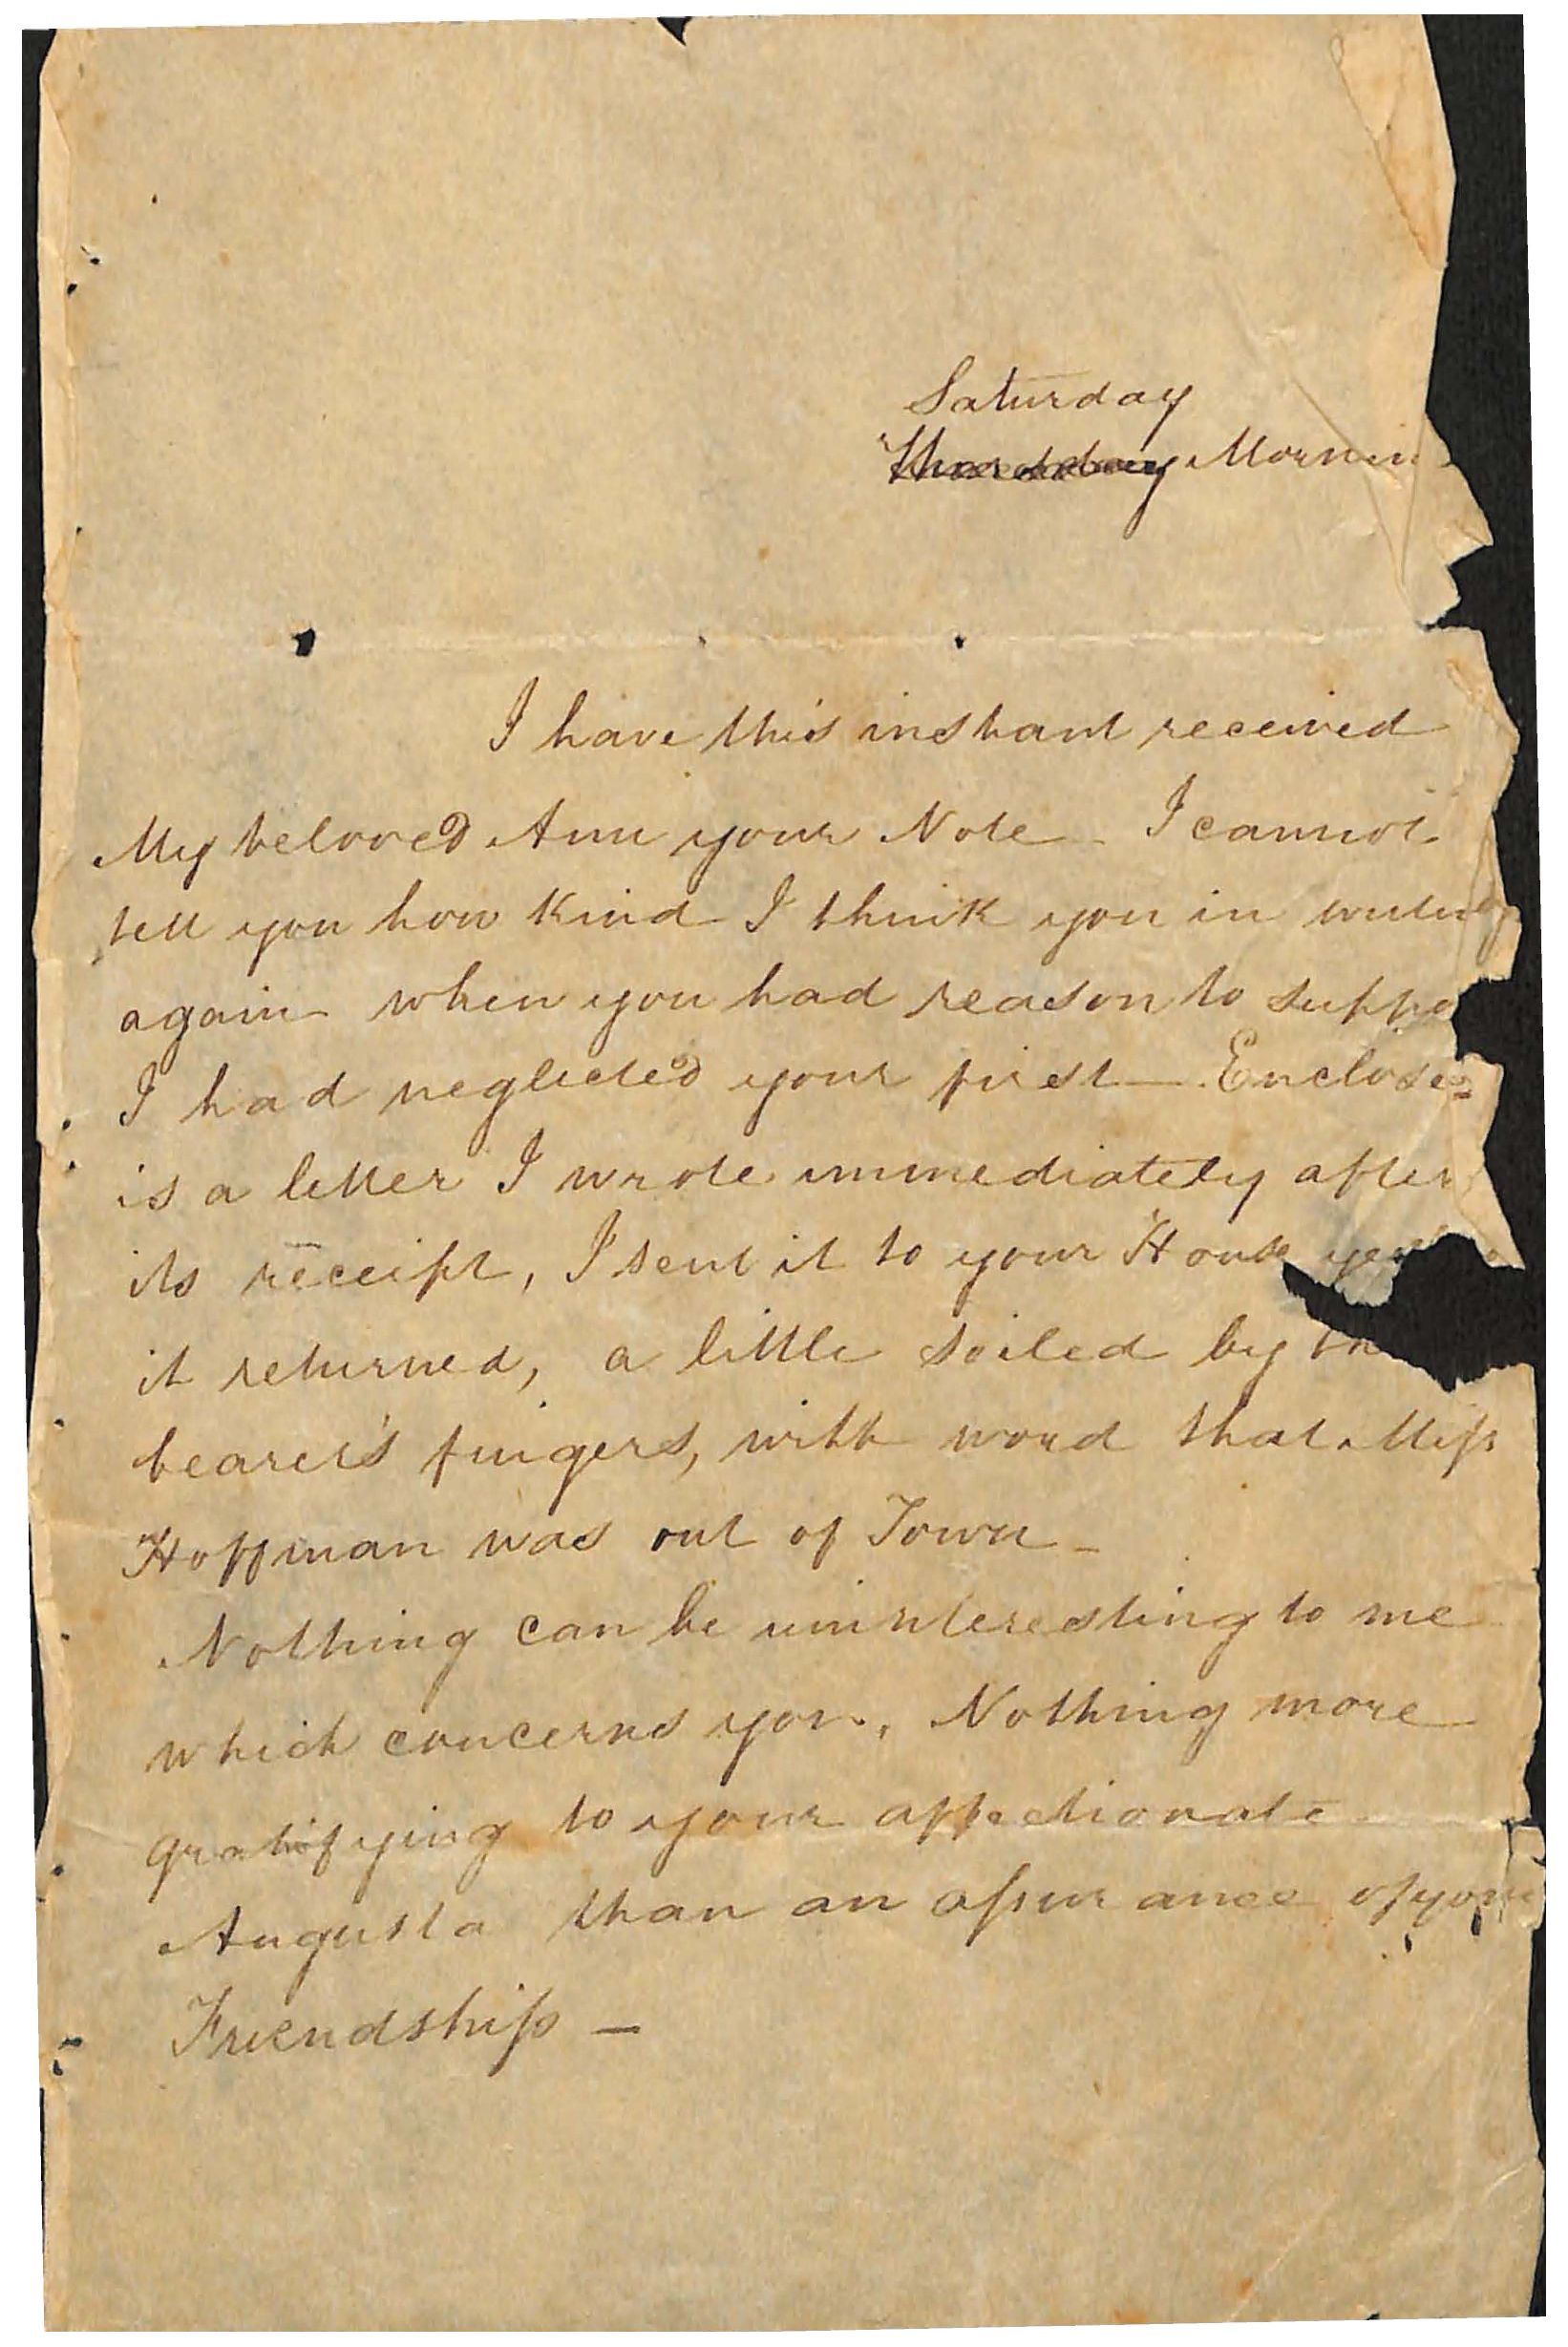 Saturday
Thursday Mornin
I have this instant received
My beloved Ann your Note - I cannot
tell you how Kind I think you in writing
again - when you had reason to suppo
I had neglected your first - Enclosed
is a letter I wrote immediately after
its receipt, I sent it to your House
it returned, a little soiled by th
bearer's fingers, with word that Miſs
Hoffman was out of Town -
Nothing can be uninteresting to me
which concerns you, Nothing more
gratifying to your affectionate
Augusta than an aſsurance of your
Friendship -